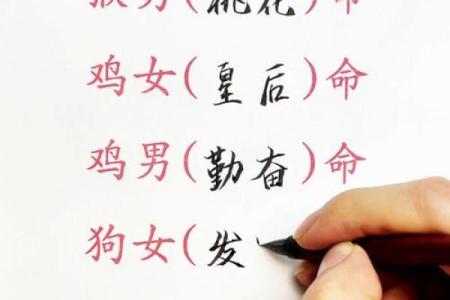 猴男(桃花)命
鸡女(皇后)命
鸡男(勤奋)命
狗女(发